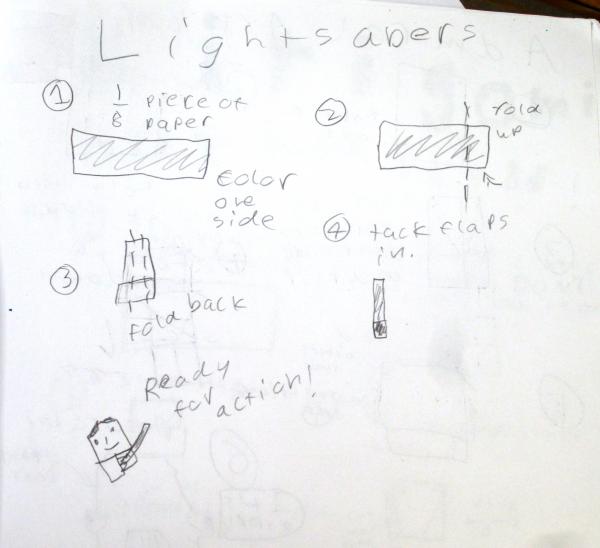 Lightsabers
① 1/8 piece of
paper
color
one
side
② fold
up
③
fold back
④ tack flaps
in.
Ready
for action!